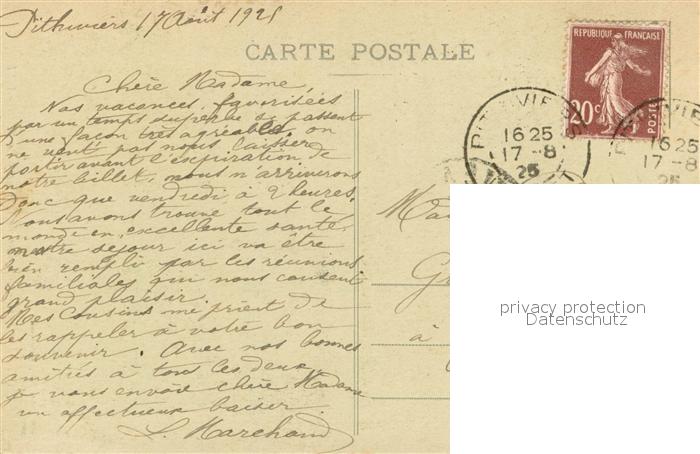 Pithiviers 17 Août 1925
CARTE POSTALE
REPUBLIQUE FRANÇAISE
20c
POSTES
PITHIVIERS
1625
17-8
25
1625
17-8
25
Chère Madame,
Nos vacances, favorisées
par un temps superbe se passent
d'une façon très agréable, on
ne veut pas nous laisser
partir avant l'expiration de
notre billet, nous n'arriverons
donc que vendredi à 2 heures.
Nous avons trouvé tout le
monde en excellente santé,
notre séjour ici va être
bien rempli par les réunions
familiales qui nous causent
grand plaisir.
Mes cousins me prient de
les rappeler à votre bon
souvenir. Avec nos bonnes
amitiés à tous les deux,
je vous envoie chère Madame
un affectueux baiser.
L. Marchand
à
privacy protection
Datenschutz